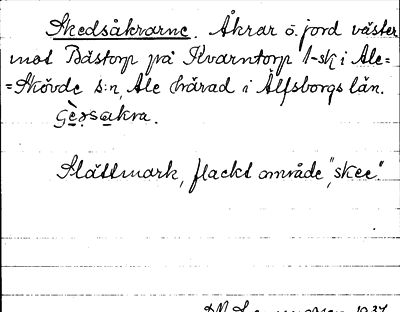 Skedsåkrarne. Åkrar o. jord väster
mot Båstorp på Kvarntorp 1-sk i Ale-
=Skövde s:n, Ale härad i Älfsborgs län.
Slättmark, flackt område, "skee".
1937